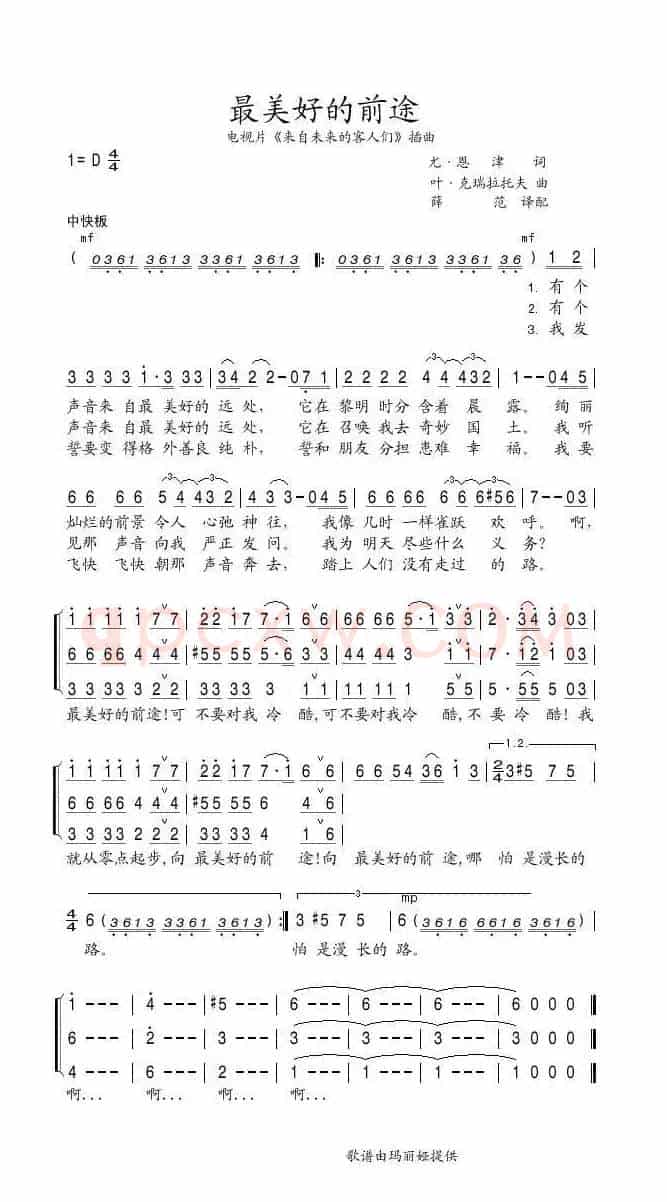 最美好的前途
电视片《来自未来的客人们》插曲
1=D 4/4
尤·恩 津 词
叶·克瑞拉托夫 曲
薛 范 译配
中快板
mf mf
( 0361 3613 3361 3613 ‖: 0361 3613 3361 36 ) 1 2 |
1. 有个
2. 有个
3. 我发
3 3 3 3 1· 3 33 | 34 2 2 - 07 1 | 2 2 2 2 4 4 432 | 1 - - 04 5 |
声音来 自最 美好的 远处, 它在 黎明 时分 含着 晨 露。绚丽
声音来 自最 美好的 远处, 它在 召唤 我去 奇妙 国 土。我听
誓要变 得格 外善良 纯朴, 誓和 朋友 分担 患难 幸 福。我要
6 6 6 6 5 4 432 | 4 3 - 04 5 | 6 6 6 6 6 6 6#56 | 7 - - 03 |
灿烂的 前景 令人 心弛 神往, 我像 几时 一样 雀跃 欢 呼。啊,
见那 声音 向我 严正 发 问。 我为 明天 尽些 什么 义 务?
飞快 飞快 朝那 声音 奔 去, 踏上 人们 没有 走过 的 路。
qpcxw.COM
1 11 11 1 77 | 22 17 7·1 66 | 66 66 5·1 33 | 2·34 3 03 |
66 66 44 4 | #55 55 5·6 33 |
33 33 22 2 |
最美好的前途!可 不要对我冷 酷,可不要对我冷 酷,不 要 冷 酷! 我
1 11 11 1 77 | 22 17 7·1 6 6 | 66 54 36 1 3 | 2/4 3#5 7 5 |
1.2.
66 66 44 4 | #55 55 6 4 6
33 33 22 2
就从零点起步,向 最美好的前 途!向 最美好的前 途,哪 怕是漫长的
3 mp
4/4 6 (3613 3361 3613) :‖ 3 #5 7 5 | 6 (3616 6361 6636 |
路。 怕 是漫 长的 路。
1 - - - | 4 - - - | #5 - - - | 6 - - - | 6 - - - | 6 - - - | 6 0 0 0 ‖
6 - - - | 2 - - - | 3 - - - | 3 - - - | 3 - - - | 3 - - - | 3 0 0 0 ‖
4 - - - | 6 - - - | 2 - - - | 1 - - - | 1 - - - | 1 - - - | 1 0 0 0 ‖
啊... 啊... 啊... 啊...
歌谱由玛丽娅提供